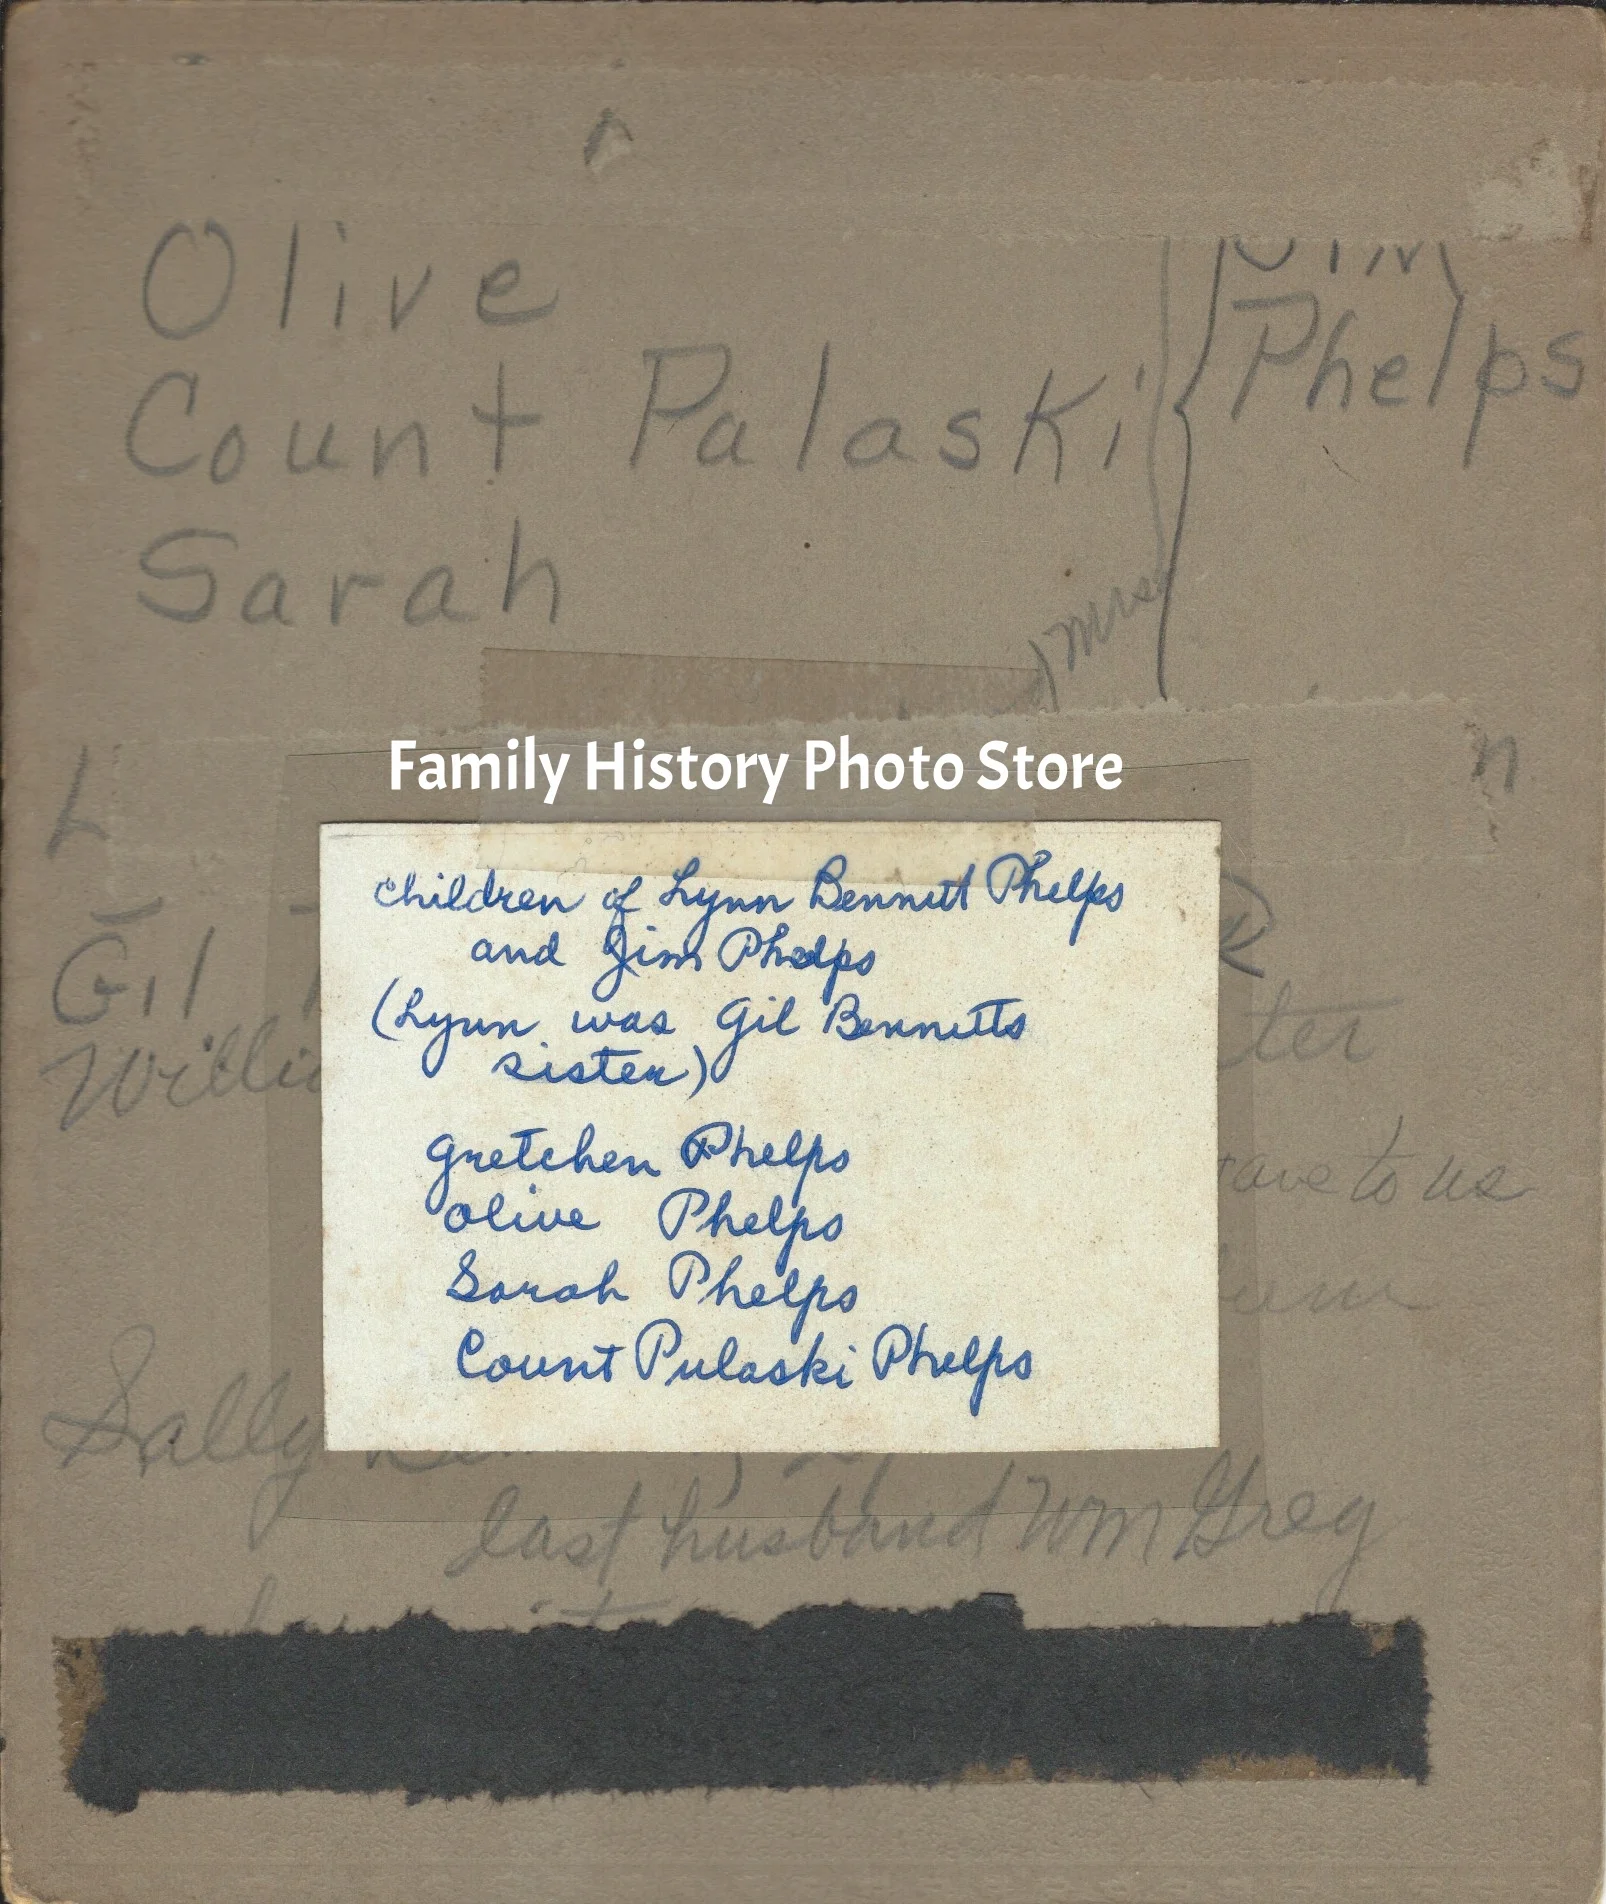 Olive
Jim
Phelps
Count Palaski
Sarah
Mrs
Family History Photo Store
children of Lynn Bennett Phelps
and Jim Phelps
(Lynn was Gil Bennetts
sister)
Gretchen Phelps
Olive Phelps
Sarah Phelps
Count Pulaski Phelps
Gil
to us
Sally
last husband Wm Greg